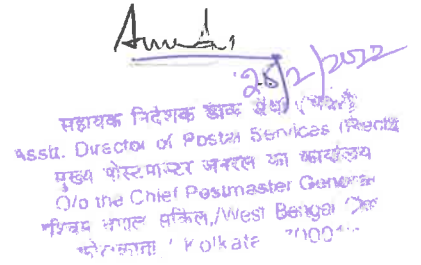 25/2/2022
सहायक निदेशक डाक सेवा
Asstt. Director of Postal Services
मुख्य पोस्टमास्टर जनरल का कार्यालय
O/o the Chief Postmaster General
पश्चिम बंगाल सर्किल,/West Bengal
कोलकाता / Kolkata